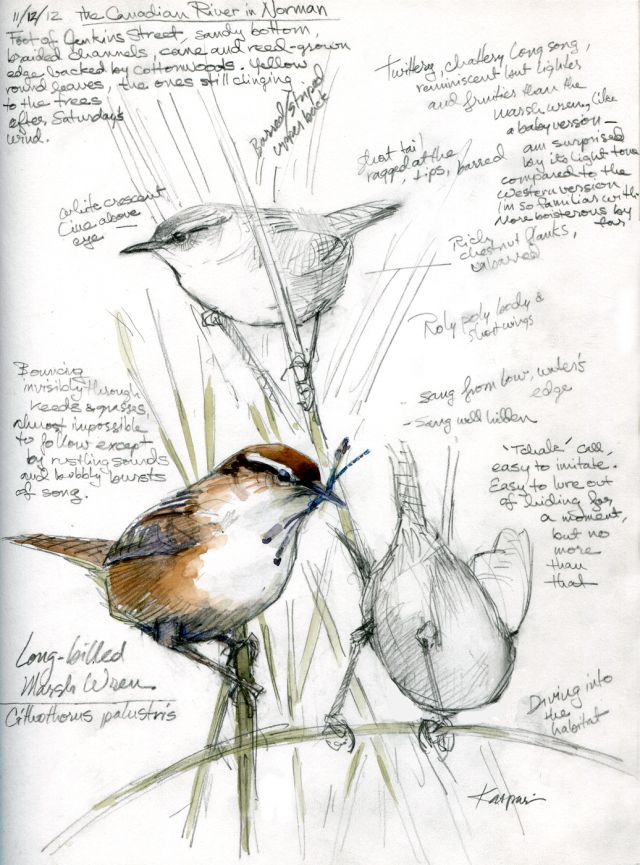 11/12/12 the Canadian River in Norman
Foot of Jenkins Street, sandy bottom,
braided channels, cane and reed-grown
edge backed by cottonwoods. Yellow
round leaves, the ones still clinging
to the trees
after Saturday's
wind.
Barred/striped
upper back
Twittery, chattery long song,
reminiscent but lighter
and fruitier than the
Marsh wren, like
a baby version —
am surprised
by its light tone
compared to the
Western version
I'm so familiar with.
More boisterous by
far!
short tail
ragged at the
tips, barred
white crescent
line above
eye —
Rich
chestnut flanks,
unbarred
Roly poly body &
short wings
- sang from low, water's
edge
- Sang well hidden
Bouncing
invisibly through
reeds & grasses,
almost impossible
to follow except
by rustling sounds
and bubbly bursts
of song.
"Tchak" call,
easy to imitate.
Easy to lure out
of hiding for
a moment,
but no
more
than
that
Long-billed
Marsh Wren
Cithothorus palustris
Diving into
the
habitat
Kaspari